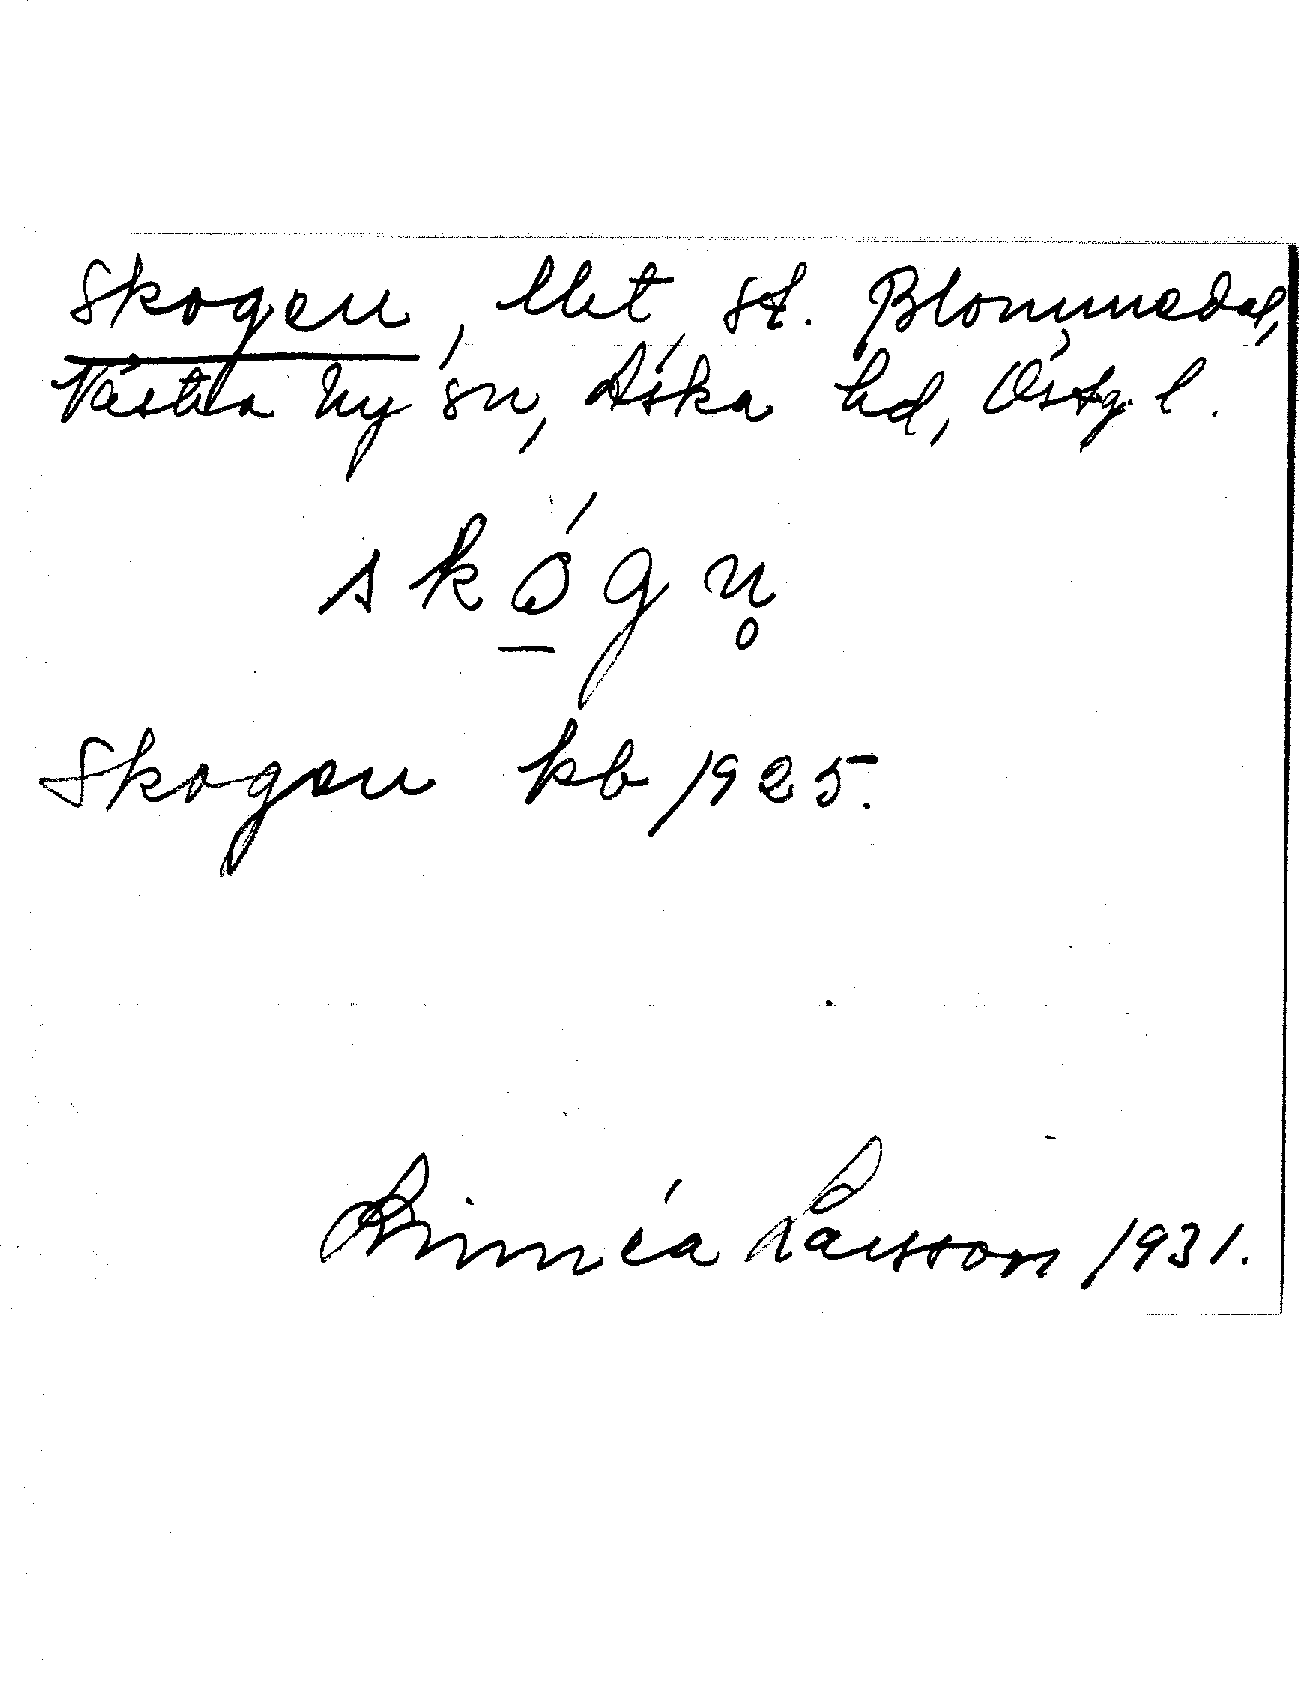 Skogen, lht, St. Blommedal,
Västra Ny sn, Aska hd, Östg. l.
skógn̥
Skogen kb 1925.
Linnéa Larsson 1931.